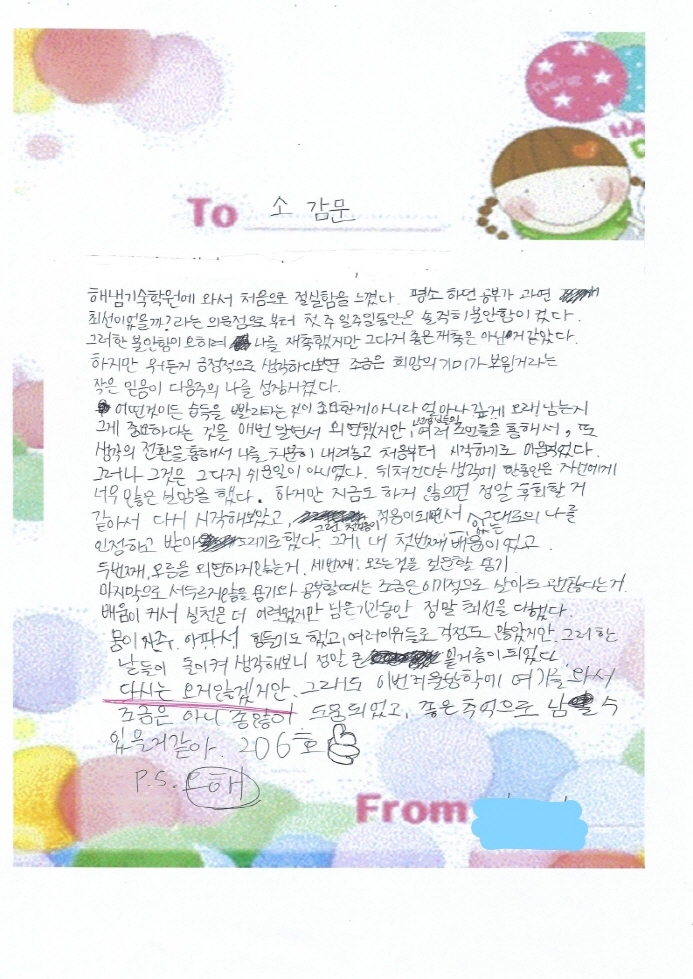 To 소 감문
해냄기숙학원에 와서 처음으로 절실함을 느꼈다. 평소 하던 공부가 과연
최선이었을까? 라는 의문점으로 부터 첫 주 일주일동안은 솔직히 불안함이 컸다.
그러한 불안함이 오히려 나를 재촉했지만 그다지 좋은 재촉은 아닌거 같았다.
하지만 뭐든게 긍정적으로 생각하다보면 조금은 희망의 기미가 보일거라는
작은 믿음이 다음주의 나를 성장시켰다.
어떤것이든 습득을 빨리하는 것이 중요한게 아니라 얼마나 깊게 오래 남는지
그게 중요하다는 것을 매번 알면서 외면했지만, 여러 조언들을 통해서, 또
생각의 전환을 통해서 나를 차분히 내려놓고 처음부터 시작하기로 마음먹었다.
그러나 그것은 그다지 쉬운일이 아니였다. 뒤쳐진다는 생각에 한동안은 자신에게
너무 많은 실망을 했다. 하지만 지금도 하지 않으면 정말 후회할 거
같아서 다시 시작해보았고, 적응이되면서 있는 그대로의 나를
인정하고 받아드리기로했다. 그게 내 첫번째 배움이였고
두번째, 모름을 외면하지않는거. 세번째: 모르는것을 질문할 용기
마지막으로 서두르지않을 용기와 공부할때는 조금은 이기적으로 살아도 괜찮다는거.
배움이 커서 실천은 더 어려웠지만 남은기간동안 정말 최선을 다했다.
몸이 자주 아파서 힘들기도 했고, 여러이유들로 걱정도 많았지만, 그러한
날들이 돌이켜 생각해보니 정말 큰 밑거름이 되었다.
다시는 오지않겠지만, 그래도 이번겨울방학에 여기를 와서
조금은 아니 좀많이 도움되었고, 좋은추억으로 남을 수
있을거같아. 206호
P.S. 오해
From